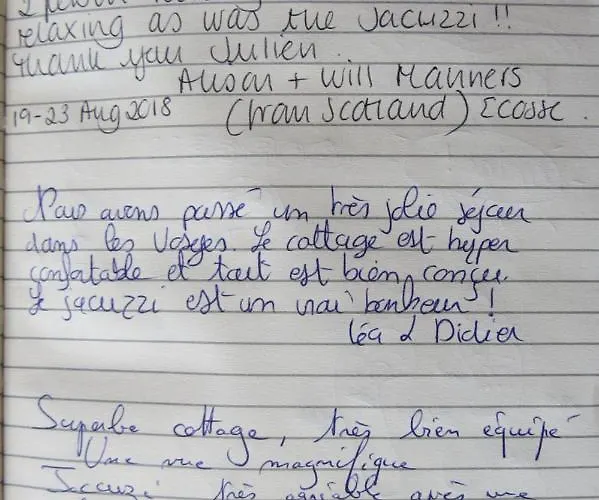 relaxing as was the Jacuzzi !!
Thank you Julien.
Alison + Will Manners
19-23 Aug 2018 (from Scotland) Ecosse.
Nous avons passé un très jolie séjour
dans les Vosges. Le cottage est hyper
confortable et tout est bien conçu.
Le jacuzzi est un vrai bonheur !
Léa & Didier
Superbe cottage, très bien équipé
Une vue magnifique
Jacuzi très agréable après une